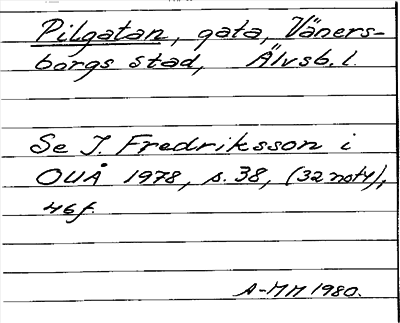 Pilgatan, gata, Väners-
borgs stad, Älvsb. l.
Se I. Fredriksson i
OUÅ 1978, s. 38, (32 not 4),
46f.
A-MM 1980.